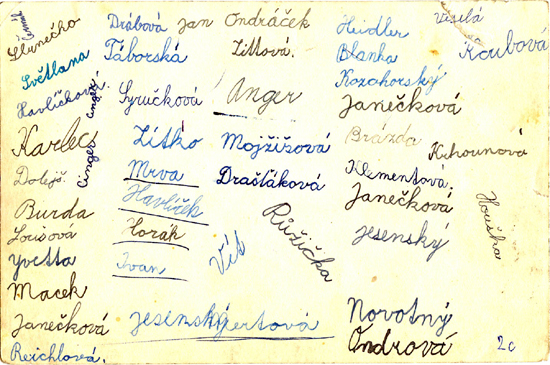 Slunéčko
Světlana
Havlíčková
Cinger
Cinger
Karlec
Dolejš.
Burda
Lorisová
Yvetta
Macek
Janečková
Reichlová.
Drábová
Táborská
Syručková
Zítko
Mrva
Havlíček
Horák
Ivan
Jesenský
Jan Ondráček
Zittová.
Anger
Mojžíšová
Drašťáková
Růžička
Vít
Heidler
Blanka
Kozohorský
Janečková
Brázda
Klementová.
Janečková
Jesenský
Novotný
Ondrová
Veselá
Koubová
Krhounová
Houška
2c